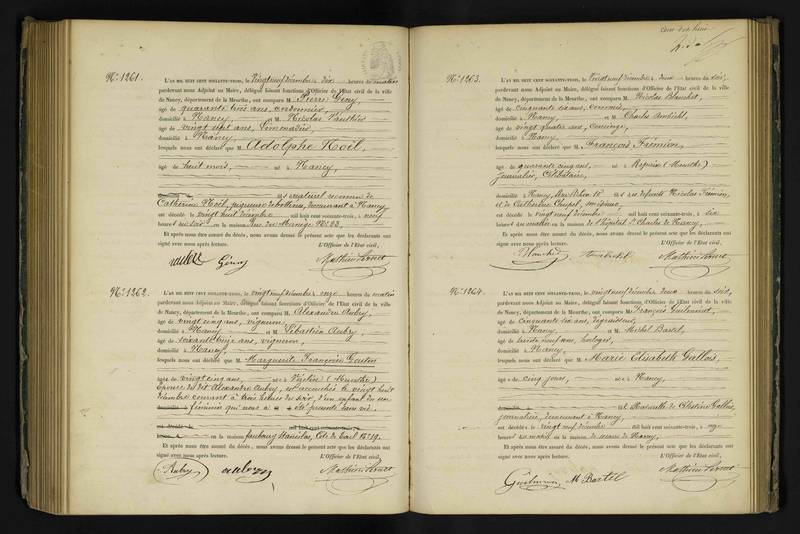 N° 1261.
L'AN MIL HUIT CENT SOIXANTE-TROIS, le vingt neuf décembre à dix heures du matin
pardevant nous Adjoint au Maire, délégué faisant fonctions d'Officier de l'Etat civil de la ville
de Nancy, département de la Meurthe, ont comparu M. Pierre Geny,
âgé de quarante trois ans, cordonnier,
domicilié à Nancy, et M. Nicolas Vauthier
âgé de vingt sept ans,
domicilié à Nancy,
lesquels nous ont déclaré que Adolphe Noël,
âgé de huit mois, né à Nancy,
fils naturel reconnu de
Catherine Noël, piqueuse de bottines, demeurant à Nancy
est décédé le vingt huit décembre mil huit cent soixante-trois, à neuf
heures du soir, en la maison rue du Manège N° 23,
Et après nous être assuré du décès, nous avons dressé le présent acte que les déclarants ont
signé avec nous après lecture. L'Officier de l'Etat civil,
Gény Mathieu
N° 1262.
L'AN MIL HUIT CENT SOIXANTE-TROIS, le vingt neuf décembre à onze heures du matin
pardevant nous Adjoint au Maire, délégué faisant fonctions d'Officier de l'Etat civil de la ville
de Nancy, département de la Meurthe, ont comparu M. Alexandre Aubry,
âgé de vingt cinq ans, vigneron,
domicilié à Nancy et M. Sébastien Aubry,
âgé de soixante ans, vigneron,
domicilié à Nancy,
lesquels nous ont déclaré que Marguerite Françoise Goutin
âgée de vingt cinq ans, née à (Meurthe)
Epouse du dit Alexandre Aubry, est accouchée le vingt huit
décembre courant à trois heures du soir, d'un enfant du sexe
féminin qui nous a été présenté sans vie.
en la maison faubourg Stanislas, Côte de Toul N° 19.
Et après nous être assuré du décès, nous avons dressé le présent acte que les déclarants ont
signé avec nous après lecture. L'Officier de l'Etat civil,
Aubry Mathieu
N° 1263.
L'AN MIL HUIT CENT SOIXANTE-TROIS, le vingt neuf décembre à deux heures du soir,
pardevant nous Adjoint au Maire, délégué faisant fonctions d'Officier de l'Etat civil de la ville
de Nancy, département de la Meurthe, ont comparu M. Nicolas Blanchet,
âgé de cinquante six ans, commis,
domicilié à Nancy et M. Charles
âgé de vingt quatre ans, concierge,
domicilié à Nancy,
lesquels nous ont déclaré que François Frémion,
âgé de quarante cinq ans, né à (Moselle)
journalier, célibataire,
domicilié à Nancy, fils de défunts Nicolas Frémion,
et de Catherine
est décédé le vingt neuf décembre mil huit cent soixante-trois, à six
heures du matin en la maison de l'hôpital St Charles de Nancy,
Et après nous être assuré du décès, nous avons dressé le présent acte que les déclarants ont
signé avec nous après lecture. L'Officier de l'Etat civil,
Blanchet Mathieu
N° 1264.
L'AN MIL HUIT CENT SOIXANTE-TROIS, le vingt neuf décembre à deux heures du soir,
pardevant nous Adjoint au Maire, délégué faisant fonctions d'Officier de l'Etat civil de la ville
de Nancy, département de la Meurthe, ont comparu M. François Guilminot,
âgé de cinquante six ans, dégraisseur,
domicilié à Nancy, et M. Michel Bartel,
âgé de trente neuf ans, horloger,
domicilié à Nancy,
lesquels nous ont déclaré que Marie Elisabeth Gallois,
âgée de cinq jours, née à Nancy,
fille naturelle de Célestine Gallois,
journalière, demeurant à Nancy,
est décédée le vingt neuf décembre mil huit cent soixante-trois, à
heures du matin en la maison de secours de Nancy,
Et après nous être assuré du décès, nous avons dressé le présent acte que les déclarants ont
signé avec nous après lecture. L'Officier de l'Etat civil,
M Bartel Mathieu